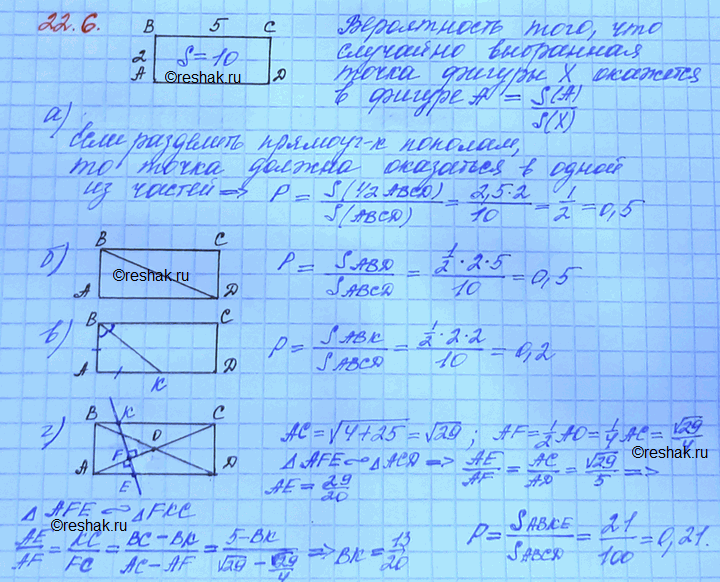 22.6.
B 5 C
2 S=10
A D
©reshak.ru
Вероятность того, что
случайно выбранная
точка фигуры X окажется
в фигуре A = S(A)/S(X)
а)
Если разделить прямоуг-к пополам,
то точка должна оказаться в одной
из частей => P = S(1/2 ABCD)/S(ABCD) = 2,5·2/10 = 1/2 = 0,5
б) B C
A D
©reshak.ru
P = S ABD/S ABCD = 1/2·2·5/10 = 0,5
в) B C
A K D
P = S ABK/S ABCD = 1/2·2·2/10 = 0,2
г) B K C
O
F
A E D
AC = √4+25 = √29 ; AF = 1/2 AO = 1/4 AC = √29/4
△AFE ∼ △ACD => AE/AF = AC/AD = √29/5 =>
AE = 29/20
△AFE ∼ △FKC
AE/AF = KC/FC = BC-BK/AC-AF = 5-BK/√29-√29/4 => BK = 13/20
©reshak.ru
P = S ABKE/S ABCD = 21/100 = 0,21.